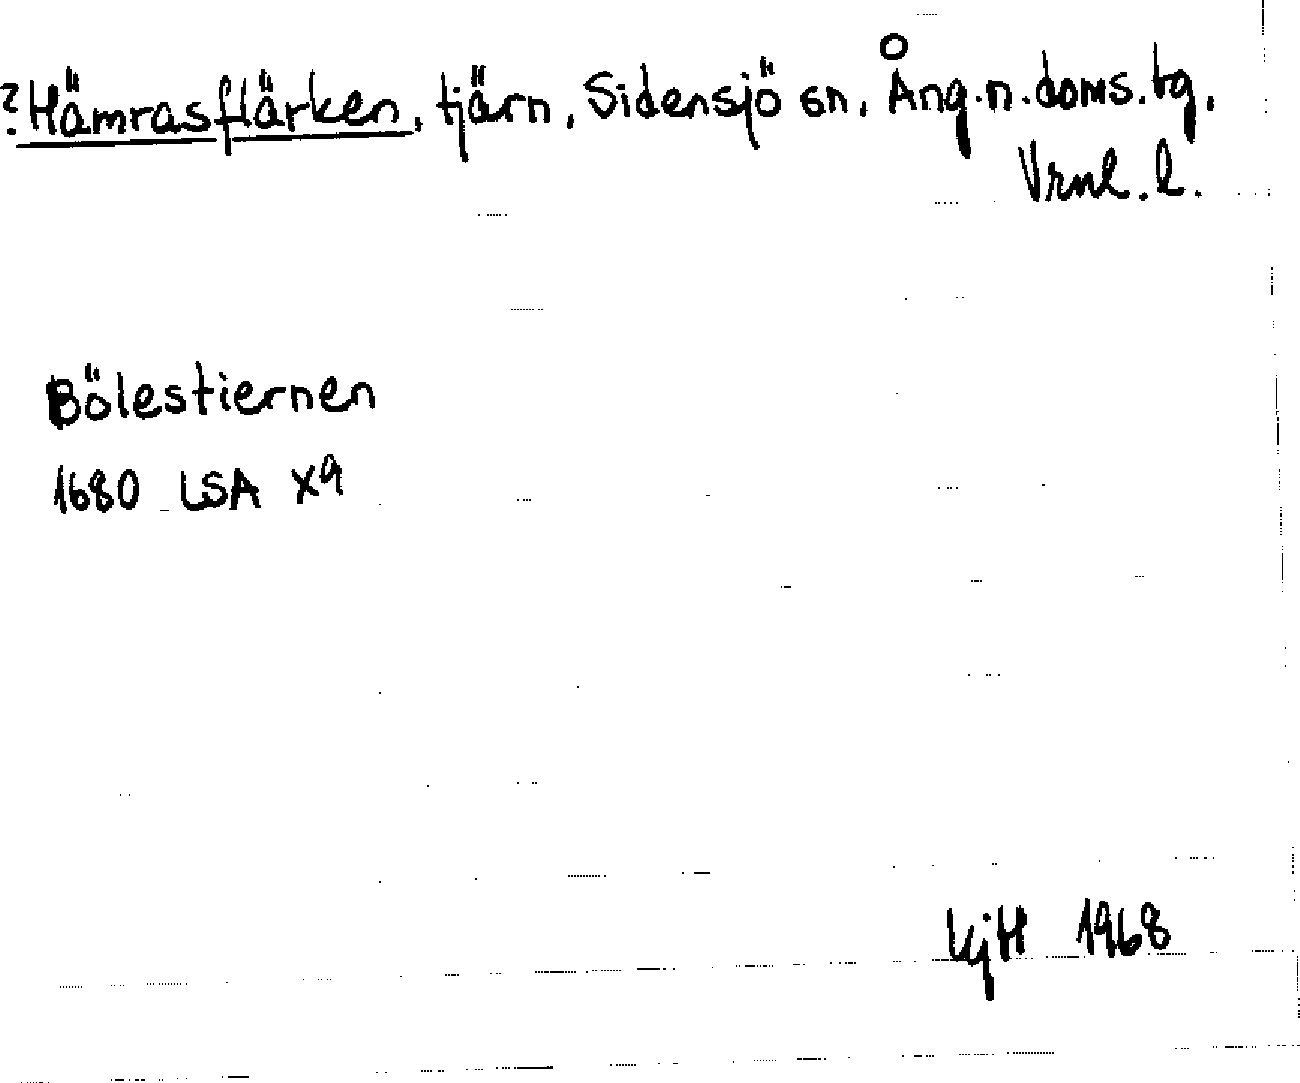 ?Hämrasflärken, tjärn, Sidensjö sn, Ång.n.doms.tg,
Vrnl. l.
Bölestiernen
1680 LSA X9
KjH 1968